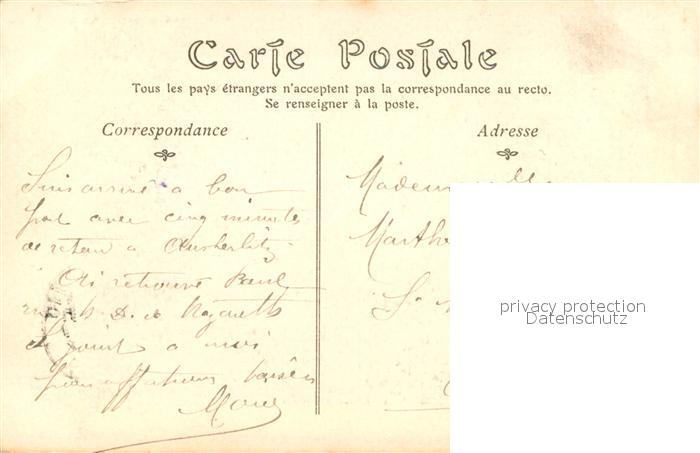 Carte Postale
Tous les pays étrangers n'acceptent pas la correspondance au recto.
Se renseigner à la poste.
Correspondance
Adresse
Suis arrivé à bon
port avec cinq minutes
de retard a Austerlitz
Ai retrouvé Paul
rue N. D. de Nazareth
se joint a moi
baisers
Mademoiselle
Marthe
privacy protection
Datenschutz